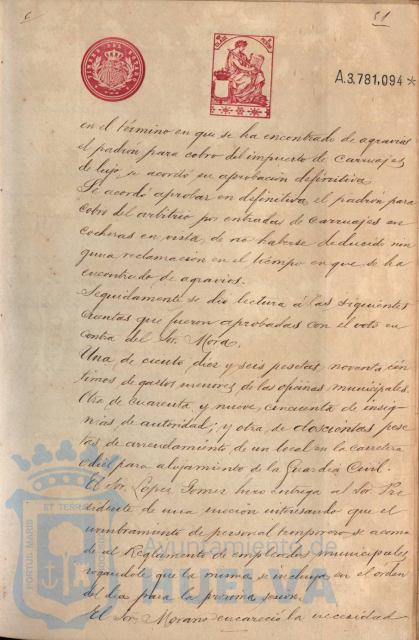 51
A.3.781,094*
en el término en que se ha encontrado de agravios
el padrón para cobro del impuesto de carruajes
de lujo, se acordó su aprobación definitiva.
Se acordó aprobar en definitiva, el padrón para
cobro del arbitrio por entradas de carruajes en
cocheras en vista de no haberse deducido nin
guna reclamación en el tiempo en que se ha
encontrado de agravios.
Seguidamente se dio lectura á las siguientes
cuentas que fueron aprobadas con el voto en
contra del Sr. Mora.
Una de ciento diez y seis pesetas noventa cén
timos de gastos menores de las oficinas municipales.
Otra de cuarenta y nueve, cincuenta de insig-
nias de autoridad; y otra de doscientas pese
tas de arrendamiento de un local en la carretera
Odiel para alojamiento de la Guardia Civil.
El Sr. López Gómez hizo entrega al Sr. Pre
sidente de una moción interesando que el
nombramiento de personal temporero se acomo
de al Reglamento de empleados municipales
rogándole que la misma se incluya en el orden
del día para la próxima sesión.
El Sr. Morano encareció la necesidad
PORTUS MARIS ET TERRAE
Ayuntamiento de
HUELVA